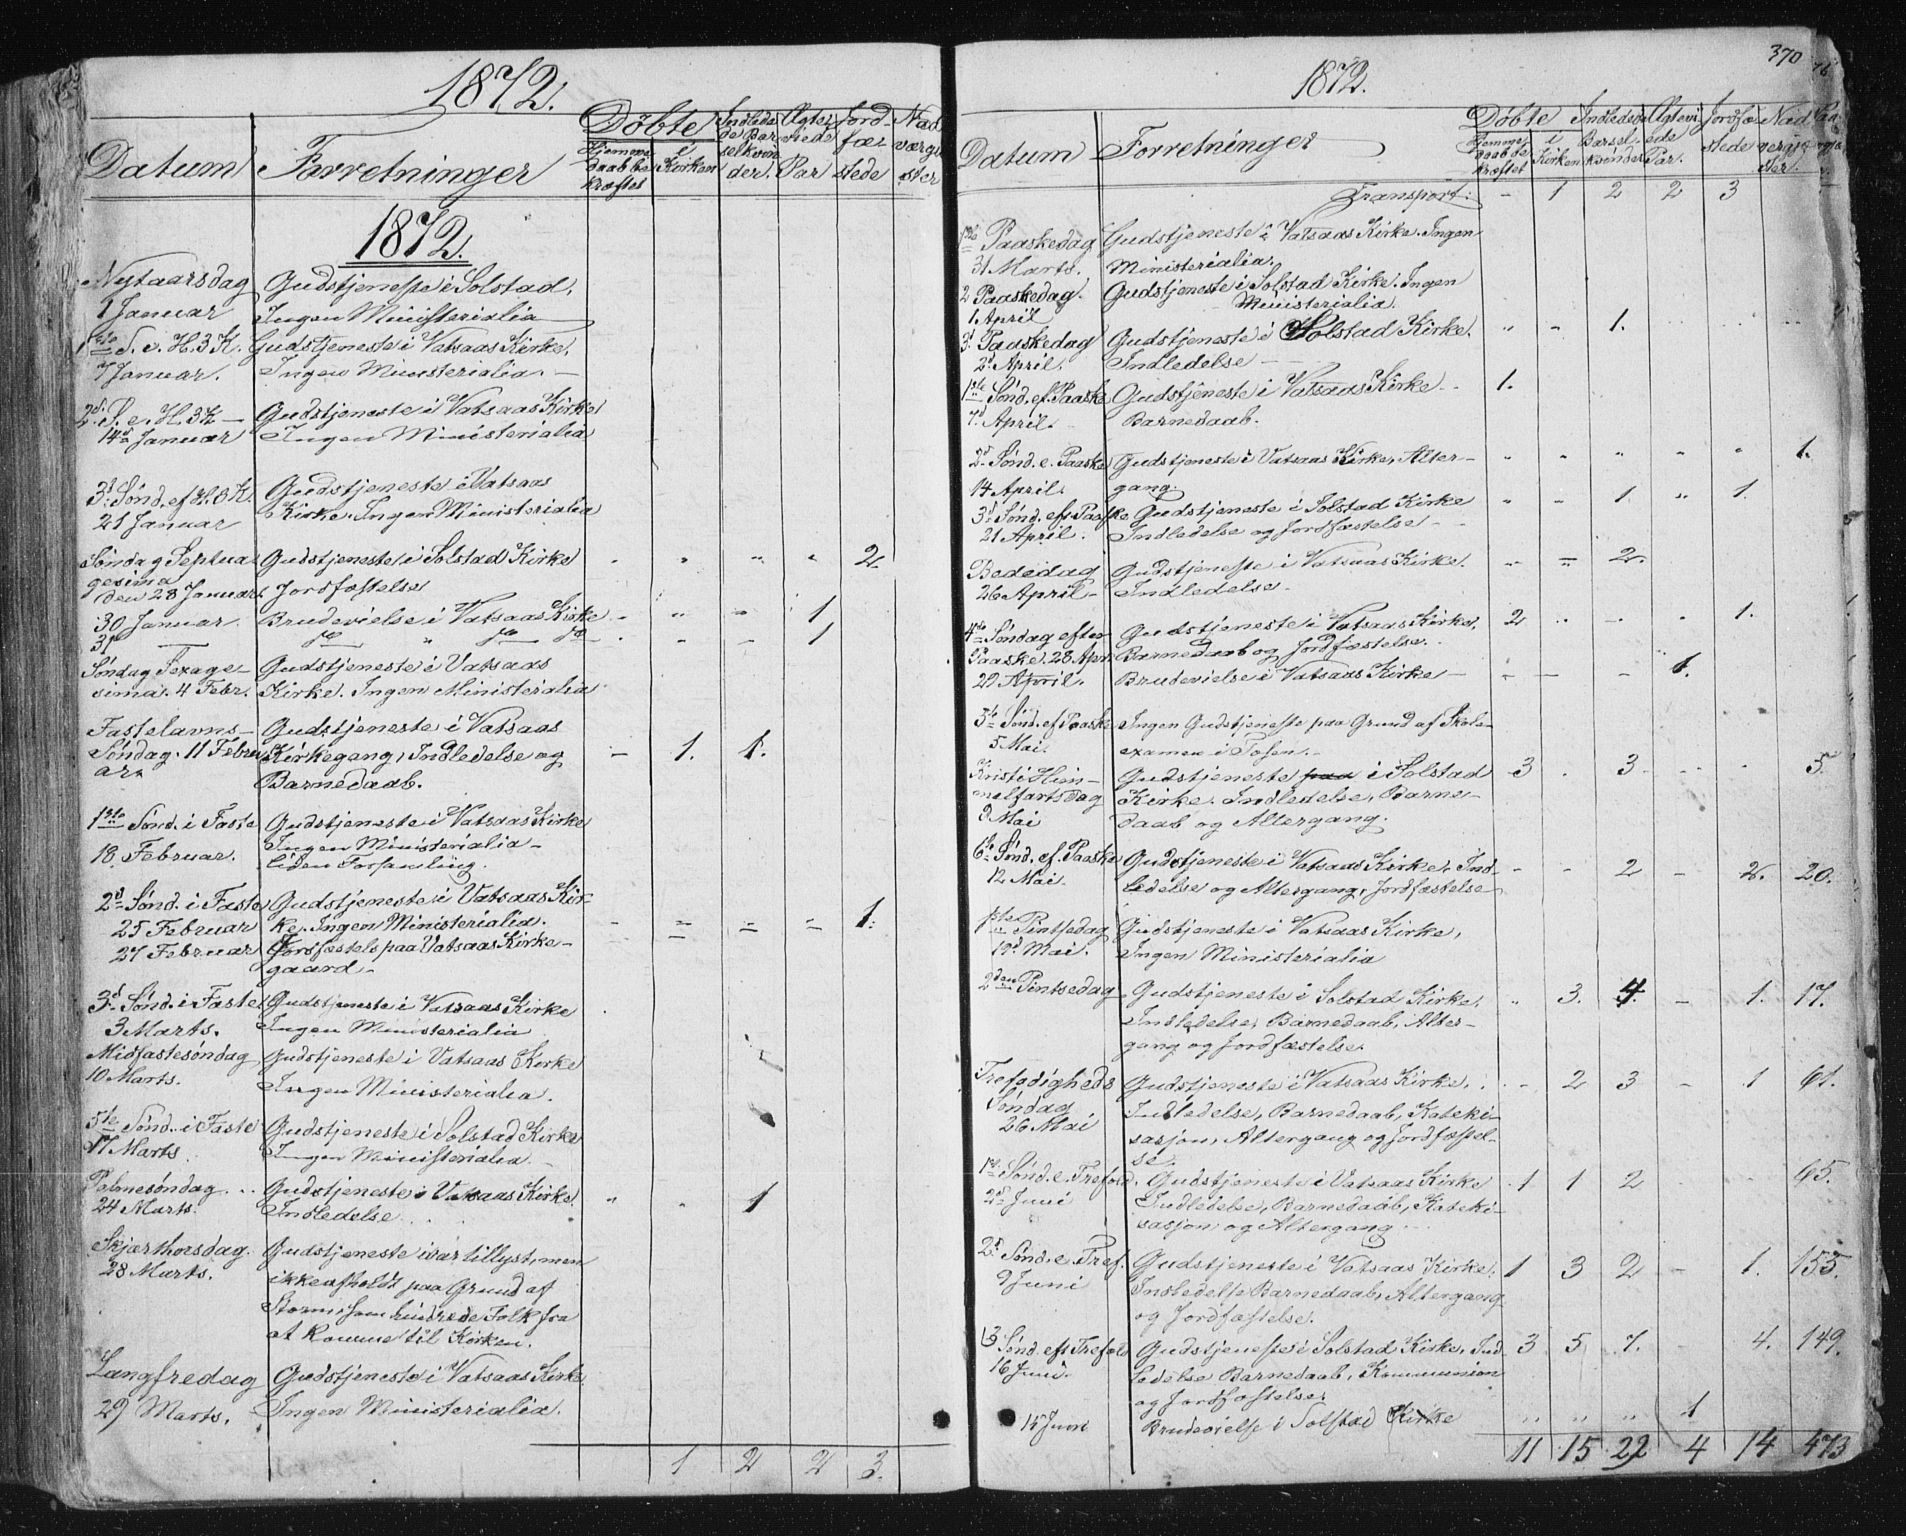 1872.
Datum Forretninger Døbte Indledede Barselkvinder. Ægteviede Par Jordfæstede Nadvergjæster
Hjemmedaab bekræftet i Kirken
1872.
Nytaarsdag Gudstjeneste i Solstad,
1 Januar Ingen Ministerialia
1ste S. e. H. 3 K. Gudstjeneste i Vatsaas Kirke,
7 Januar. Ingen Ministerialia. —
2d. S. e. H. 3 K — Gudstjeneste i Vatsaas Kirke
14d Januar Ingen Ministerialia
3d Sønd. ef H. 3 K. Gudstjeneste i Vatsaas
21 Januar Kirke. Ingen Ministerialia
Søndag Septua- Gudstjeneste i Solstad Kirke " " " " 2.
gesima
den 28 Januar. Jordfæstelse
30 Januar. Brudevielse i Vatsaas Kirke - " - 1
31 — 1
Søndag Sexage- Gudstjeneste i Vatsaas
sima. 4 Febr. Kirke. Ingen Ministerialia
Fastelavns- Gudstjeneste i Vatsaas
Søndag. 11 Febru- Kirkegang, Indledelse og — 1. 1.
ar. Barnedaab.
1ste Sønd. i Faste Gudstjeneste i Vatsaas Kirke
18 Februar. Ingen Ministerialia —
Liden Forsamling.
2d Sønd. i Faste Gudstjeneste i Vatsaas Kir-
25 Februar ke. Ingen Ministerialia. - = = = 1.
27 Februar Jordfæstels paa Vatsaas Kirke-
gaard —
3d Sønd. i Faste Gudstjeneste i Vatsaas Kirke
3 Marts. Ingen Ministerialia
Midfastesøndag Gudstjeneste i Vatsaas Kirke
10 Marts. Ingen Ministerialia.
5te Sønd. i Faste Gudstjeneste i Solstad Kirke
17 Marts. Ingen Ministerialia —
Palmesøndag Gudstjeneste i Vatsaas Kirke. " " 1
24 Marts. Indledelse
Skjærthorsdag. Gudstjeneste var tillyst, men
28 Marts. ikke afholdt paa Grund af
Storm som hindrede Folk fra
at komme til Kirken.
Langfredag Gudstjeneste i Vatsaas Kirke.
29 Marts. Ingen Ministerialia.
1 2 2 3.
370
1872.
Datum Forretninger Døbte Indledede Barselkvinder Ægteviede Par. Jordfæstede Nadvergjæster.
Hjemmedaab bekræftet i Kirken
Transport. - 1 2 2 3
1ste Paaskedag Gudstjeneste i Vatsaas Kirke. Ingen
31 Marts. Ministerialia.
2 Paaskedag. Gudstjeneste i Solstad Kirke. Ingen
1 April Ministerialia.
3d Paaskedag Gudstjeneste i Solstad Kirke. " " 1.
2d April. Indledelse —
1ste Sønd. ef. Paaske Gudstjeneste i Vatsaas Kirke 1.
7d April. Barnedaab.
2d Sønd. e. Paaske Gudstjeneste i Vatsaas Kirke, Alter- " " " " " 1.
14 April. gang.
3d Sønd. eft. Paaske Gudstjeneste i Solstad Kirke " " 1. " 1.
21 April. Indledelse og Jordfæstelse
Bededag Gudstjeneste i Vatsaas Kirke. " = 2.
26 April Indledelse
4de Søndag efter Gudstjeneste i Vatsaas Kirke. 2 " - " 1.
Paaske. 28 Apr. Barnedaab og Jordfæstelse.
29 April. Brudevielse i Vatsaas Kirke — - - - 1.
5te Sønd. ef Paaske Ingen Gudstjeneste paa Grund af Skole-
5 Mai. examen i Tosen. —
Kristi Him- Gudstjeneste paa i Solstad 3 . 3 - - 5.
melfartsdag Kirke. Indledelse, Barne-
9 Mai daab og Altergang.
6te Sønd. ef. Paaske Gudstjeneste i Vatsaas Kirke, Ind- - - 2 - 2. 20.
12 Mai. ledelse og Altergang, Jordfæstelse
1ste Pintsedag Gudstjeneste i Vatsaas Kirke,
19d Mai. Ingen Ministerialia
2den Pintsedag Gudstjeneste i Solstad Kirke, " 3. 4. - 1. 17.
Indledelse, Barnedaab, Alter-
gang og Jordfæstelse
Trefoldigheds Gudstjeneste i Vatsaas Kirke, - 2 3 - 1 61.
Søndag Indledelse, Barnedaab, Kateki-
26 Mai sasjon, Altergang og Jordfæstel-
se.
1ste Sønd. e. Trefold. Gudstjeneste i Vatsaas Kirke 1 1 2 - - 65.
2d Juni Indledelse, Barnedaab, Kateki-
sasjon og Altergang
2d Sønd. e. Tref. Gudstjeneste i Vatsaas Kirke. 1 3 2 - 1. 155.
9 Juni Indledelse Barnedaab, Altergang
og Jordfæstelse.
3 Sønd. eft Trefold Gudstjeneste i Solstad Kirke, Ind- 3 5 7. - 4. 149.
16 Juni. ledelse Barnedaab, Kommunion
og Jordfæstelse.
15 Juni Brudevielse i Solstad Kirke " " " 1
11 15 22 4 14 473